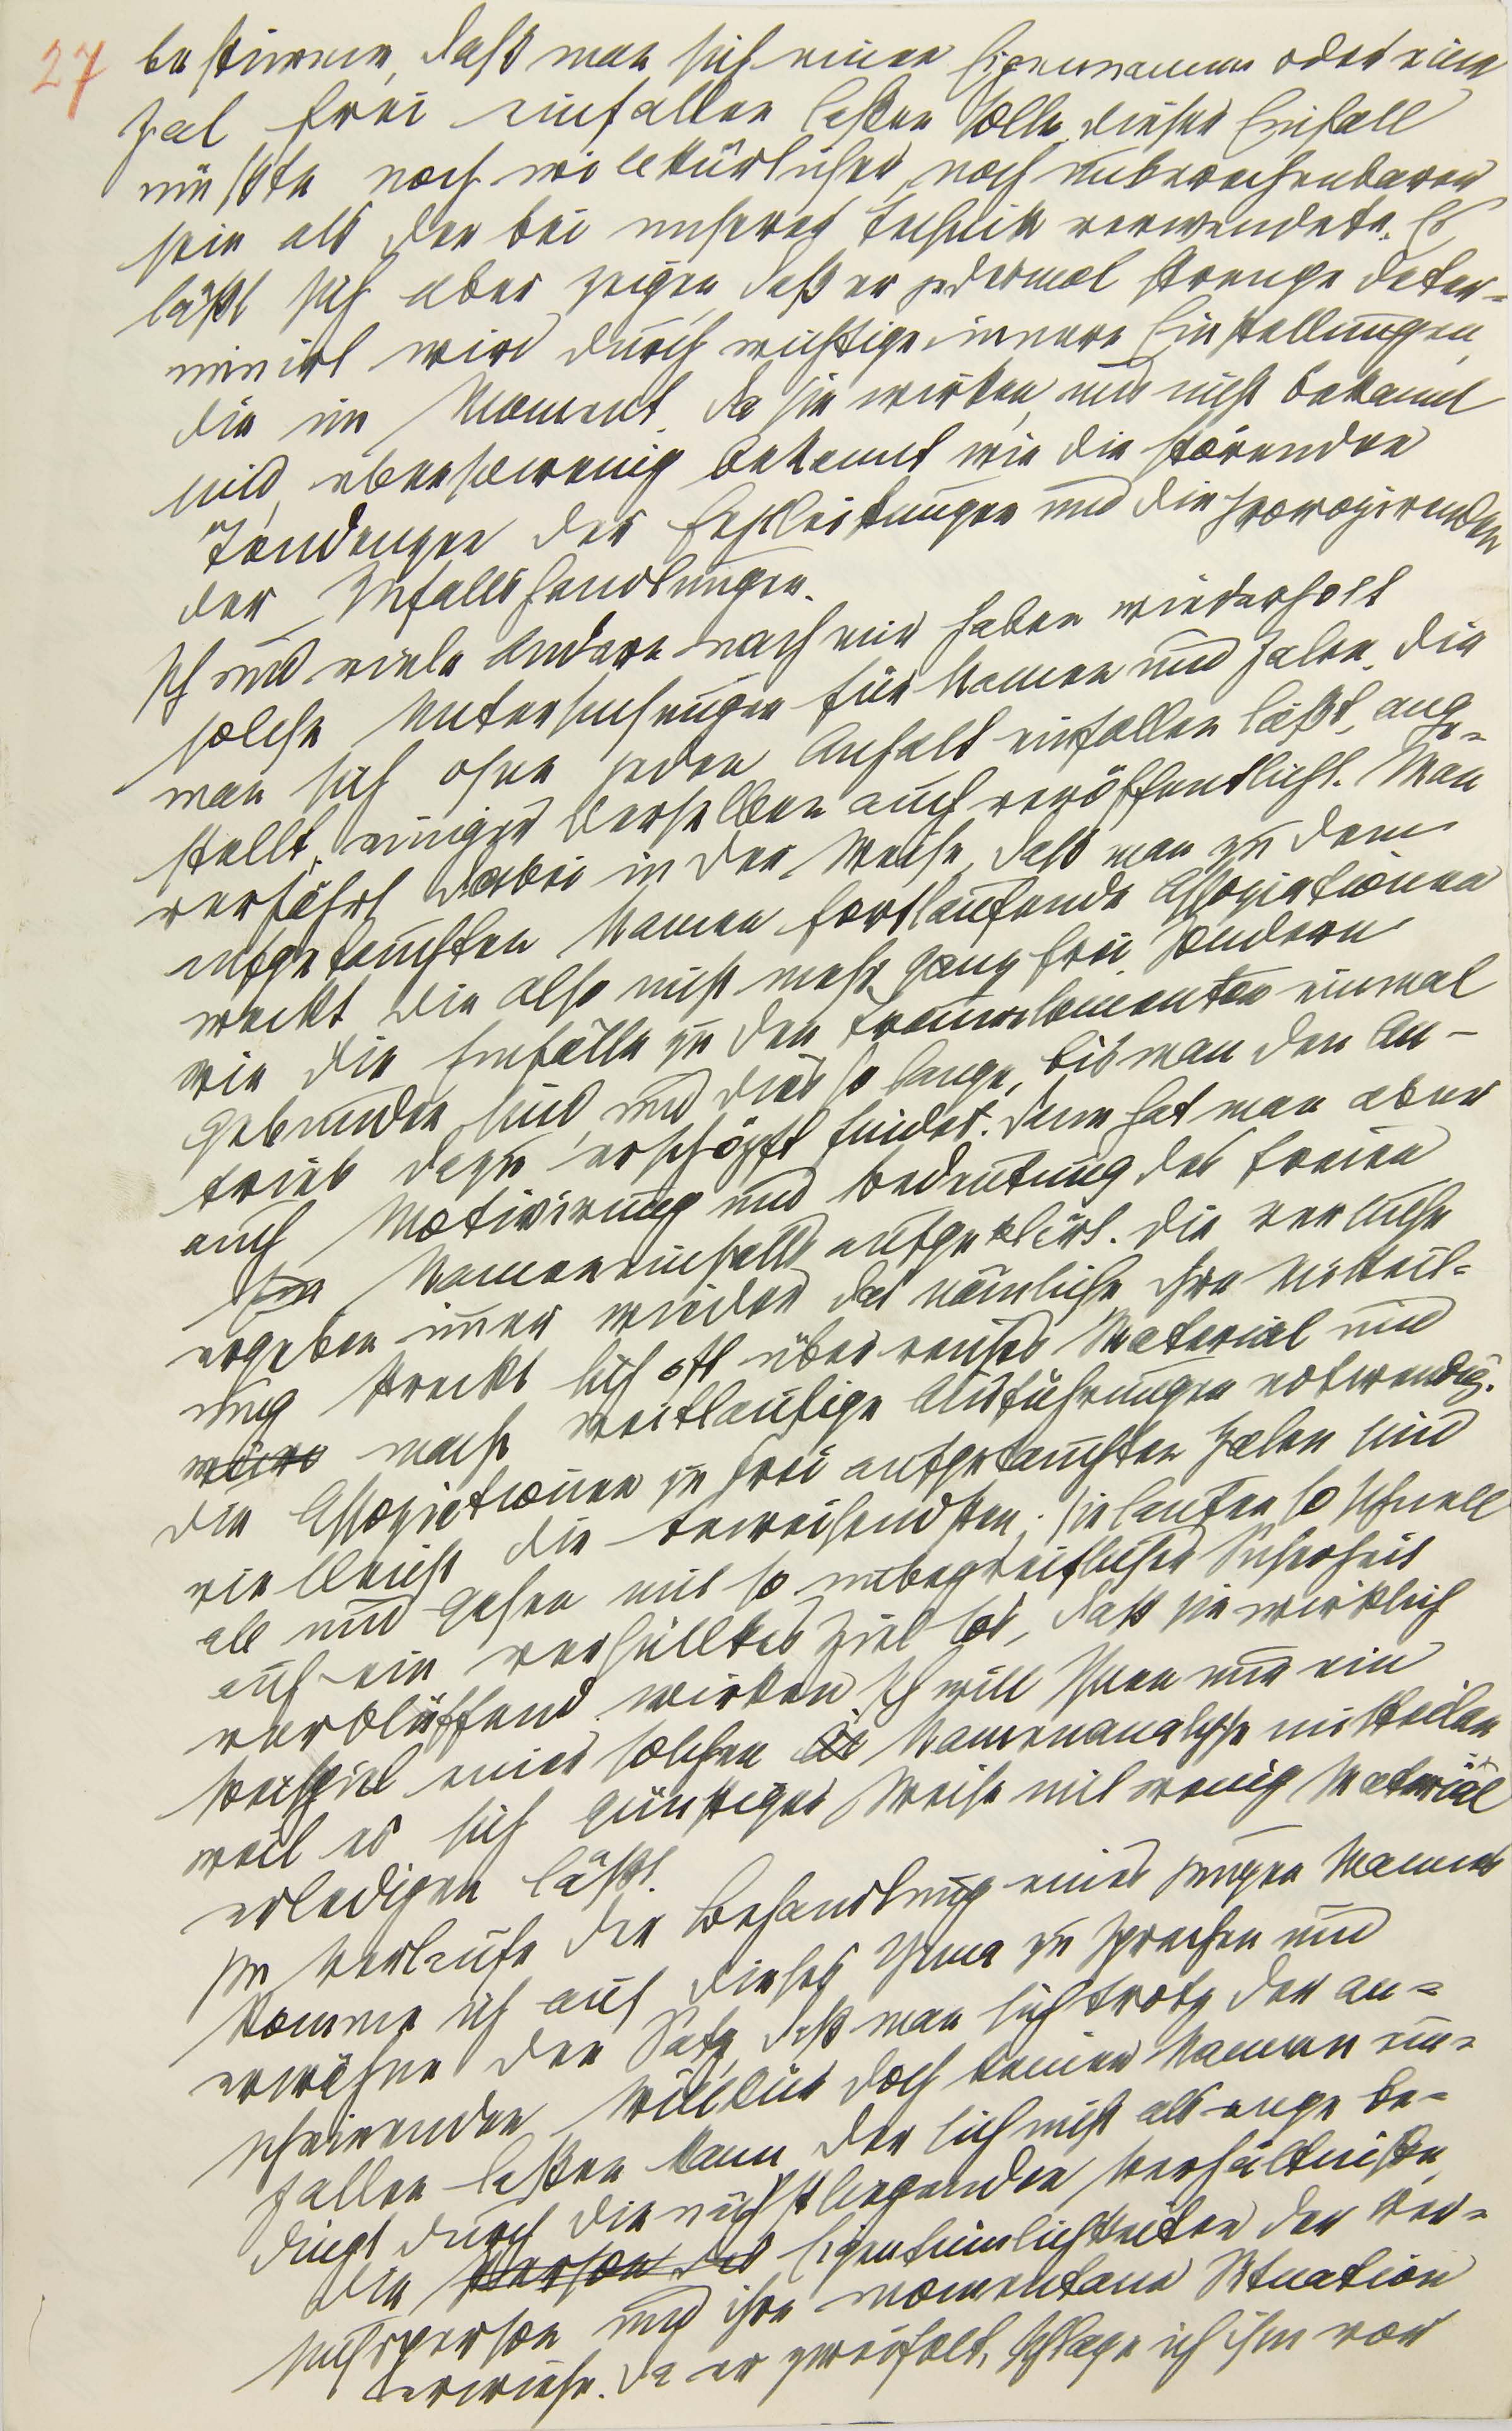 27
bestimmen, daß man sich einen Eigennamen oder eine
Zal frei einfallen laßen solle. Dieser Einfall
müßte noch willkürlicher, noch unberechenbarer
sein als der bei unserer Technik verwendete. Es
läßt sich aber zeigen, daß er jedesmal strenge deter-
minirt wird durch wichtige innere Einstellungen,
die im Moment, da sie wirken, uns nicht bekannt
sind, ebensowenig bekannt wie die störenden
Tendenzen der Fehlleistungen und die provozirenden
der Zufallshandlungen.
Ich und viele Andere nach mir haben wiederholt
solche Untersuchungen für Namen und Zalen, die
man sich ohne jeden Anhalt einfallen läßt, ange-
stellt, einige derselben auch veröffentlicht. Man
verfährt dabei in der Weise, daß man zu dem
aufgetauchten Namen fortlaufende Assoziationen
weckt, die also nicht mehr ganz frei, sondern
wie die Einfälle zu den Traumelementen einmal
gebunden sind, und dies so lange, bis man den An-
trieb dazu erschöpft findet. Dann hat man aber
auch Motivirung und Bedeutung des freien
Nameneinfalls aufgeklärt. Die Versuche
ergeben immer wieder das nämliche, ihre Mitteil-
ung streckt sich oft über reiches Material und
macht weitläufige Ausführungen notwendig.
Die Assoziationen zu frei aufgetauchten Zalen sind
vielleicht die beweisendsten; sie laufen so schnell
ab und gehen mit so unbegreiflicher Sicherheit
auf ein verhülltes Ziel los, daß sie wirklich
verblüffend wirken. Ich will Ihnen nur ein
Beispiel einer solchen Namenanalyse mitteilen,
weil es sich günstiger Weise mit wenig Material
erledigen läßt.
Im Verlaufe der Behandlung eines jungen Mannes
komme ich auf dieses Thema zu sprechen und
erwähne den Satz, daß man sich trotz der an-
scheinenden Willkür doch keinen Namen ein-
fallen laßen kann, der sich nicht als enge be-
dingt durch die nächstliegenden Verhältniße,
die Person des Eigentümlichkeiten der Ver-
suchsperson und ihre momentane Situation
erwiese. Da er zweifelt, schlage ich ihm vor